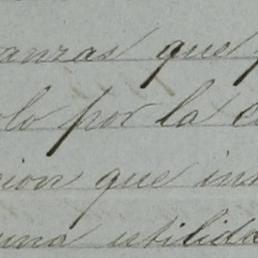 anzas que
olo por la
cion que ins
una utilida